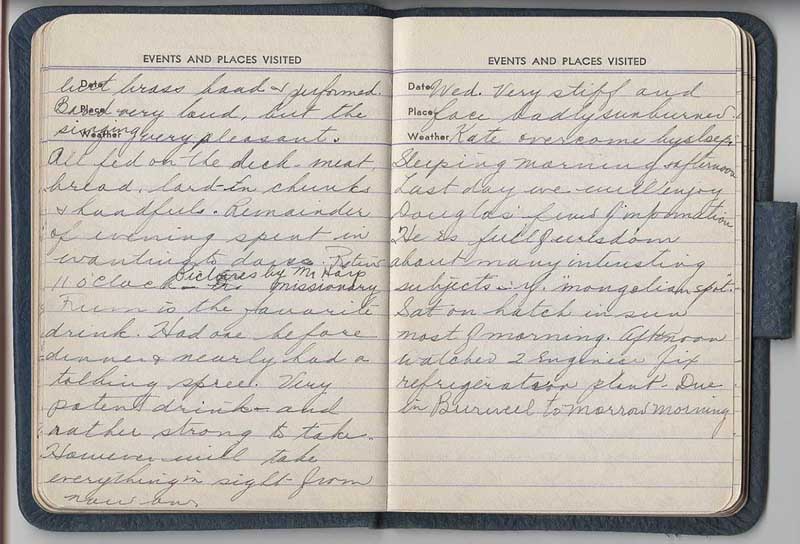 EVENTS AND PLACES VISITED
Date
Place
Weather
brass band & performed.
Band very loud, but the
singing very pleasant.
All fed on the deck - meat,
bread, lard - in chunks
& handfuls. Remainder
of evening spent in
wanting to dance.
Pictures by Mr Harp
11 o'clock - missionary
Frum is the favorite
drink. Had one before
dinner & nearly had a
talking spree. Very
potent drink - and
rather strong to take.
However will take
everything in sight from
now on.
EVENTS AND PLACES VISITED
Date Wed. Very stiff and
Place face badly sunburned
Weather Kate overcome by sleep.
Sleeping morning & afternoon
Last day we will enjoy
Douglas' fund of information
He is full of wisdom
about many interesting
subjects - "mongolian spot".
Sat on hatch in sun
most of morning. Afternoon
watched 2 Engineers fix
refrigeration plant - Due
in Burwell tomorrow morning